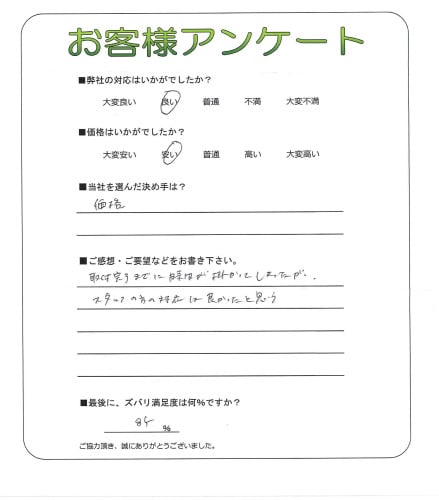 お客様アンケート
■弊社の対応はいかがでしたか？
大変良い 良い 普通 不満 大変不満
■価格はいかがでしたか？
大変安い 安い 普通 高い 大変高い
■当社を選んだ決め手は？
価格
■ご感想・ご要望などをお書き下さい。
取付完了までに時間が掛かってしまったが、
スタッフの方の対応は良かったと思う
■最後に、ズバリ満足度は何％ですか？
85 ％
ご協力頂き、誠にありがとうございました。